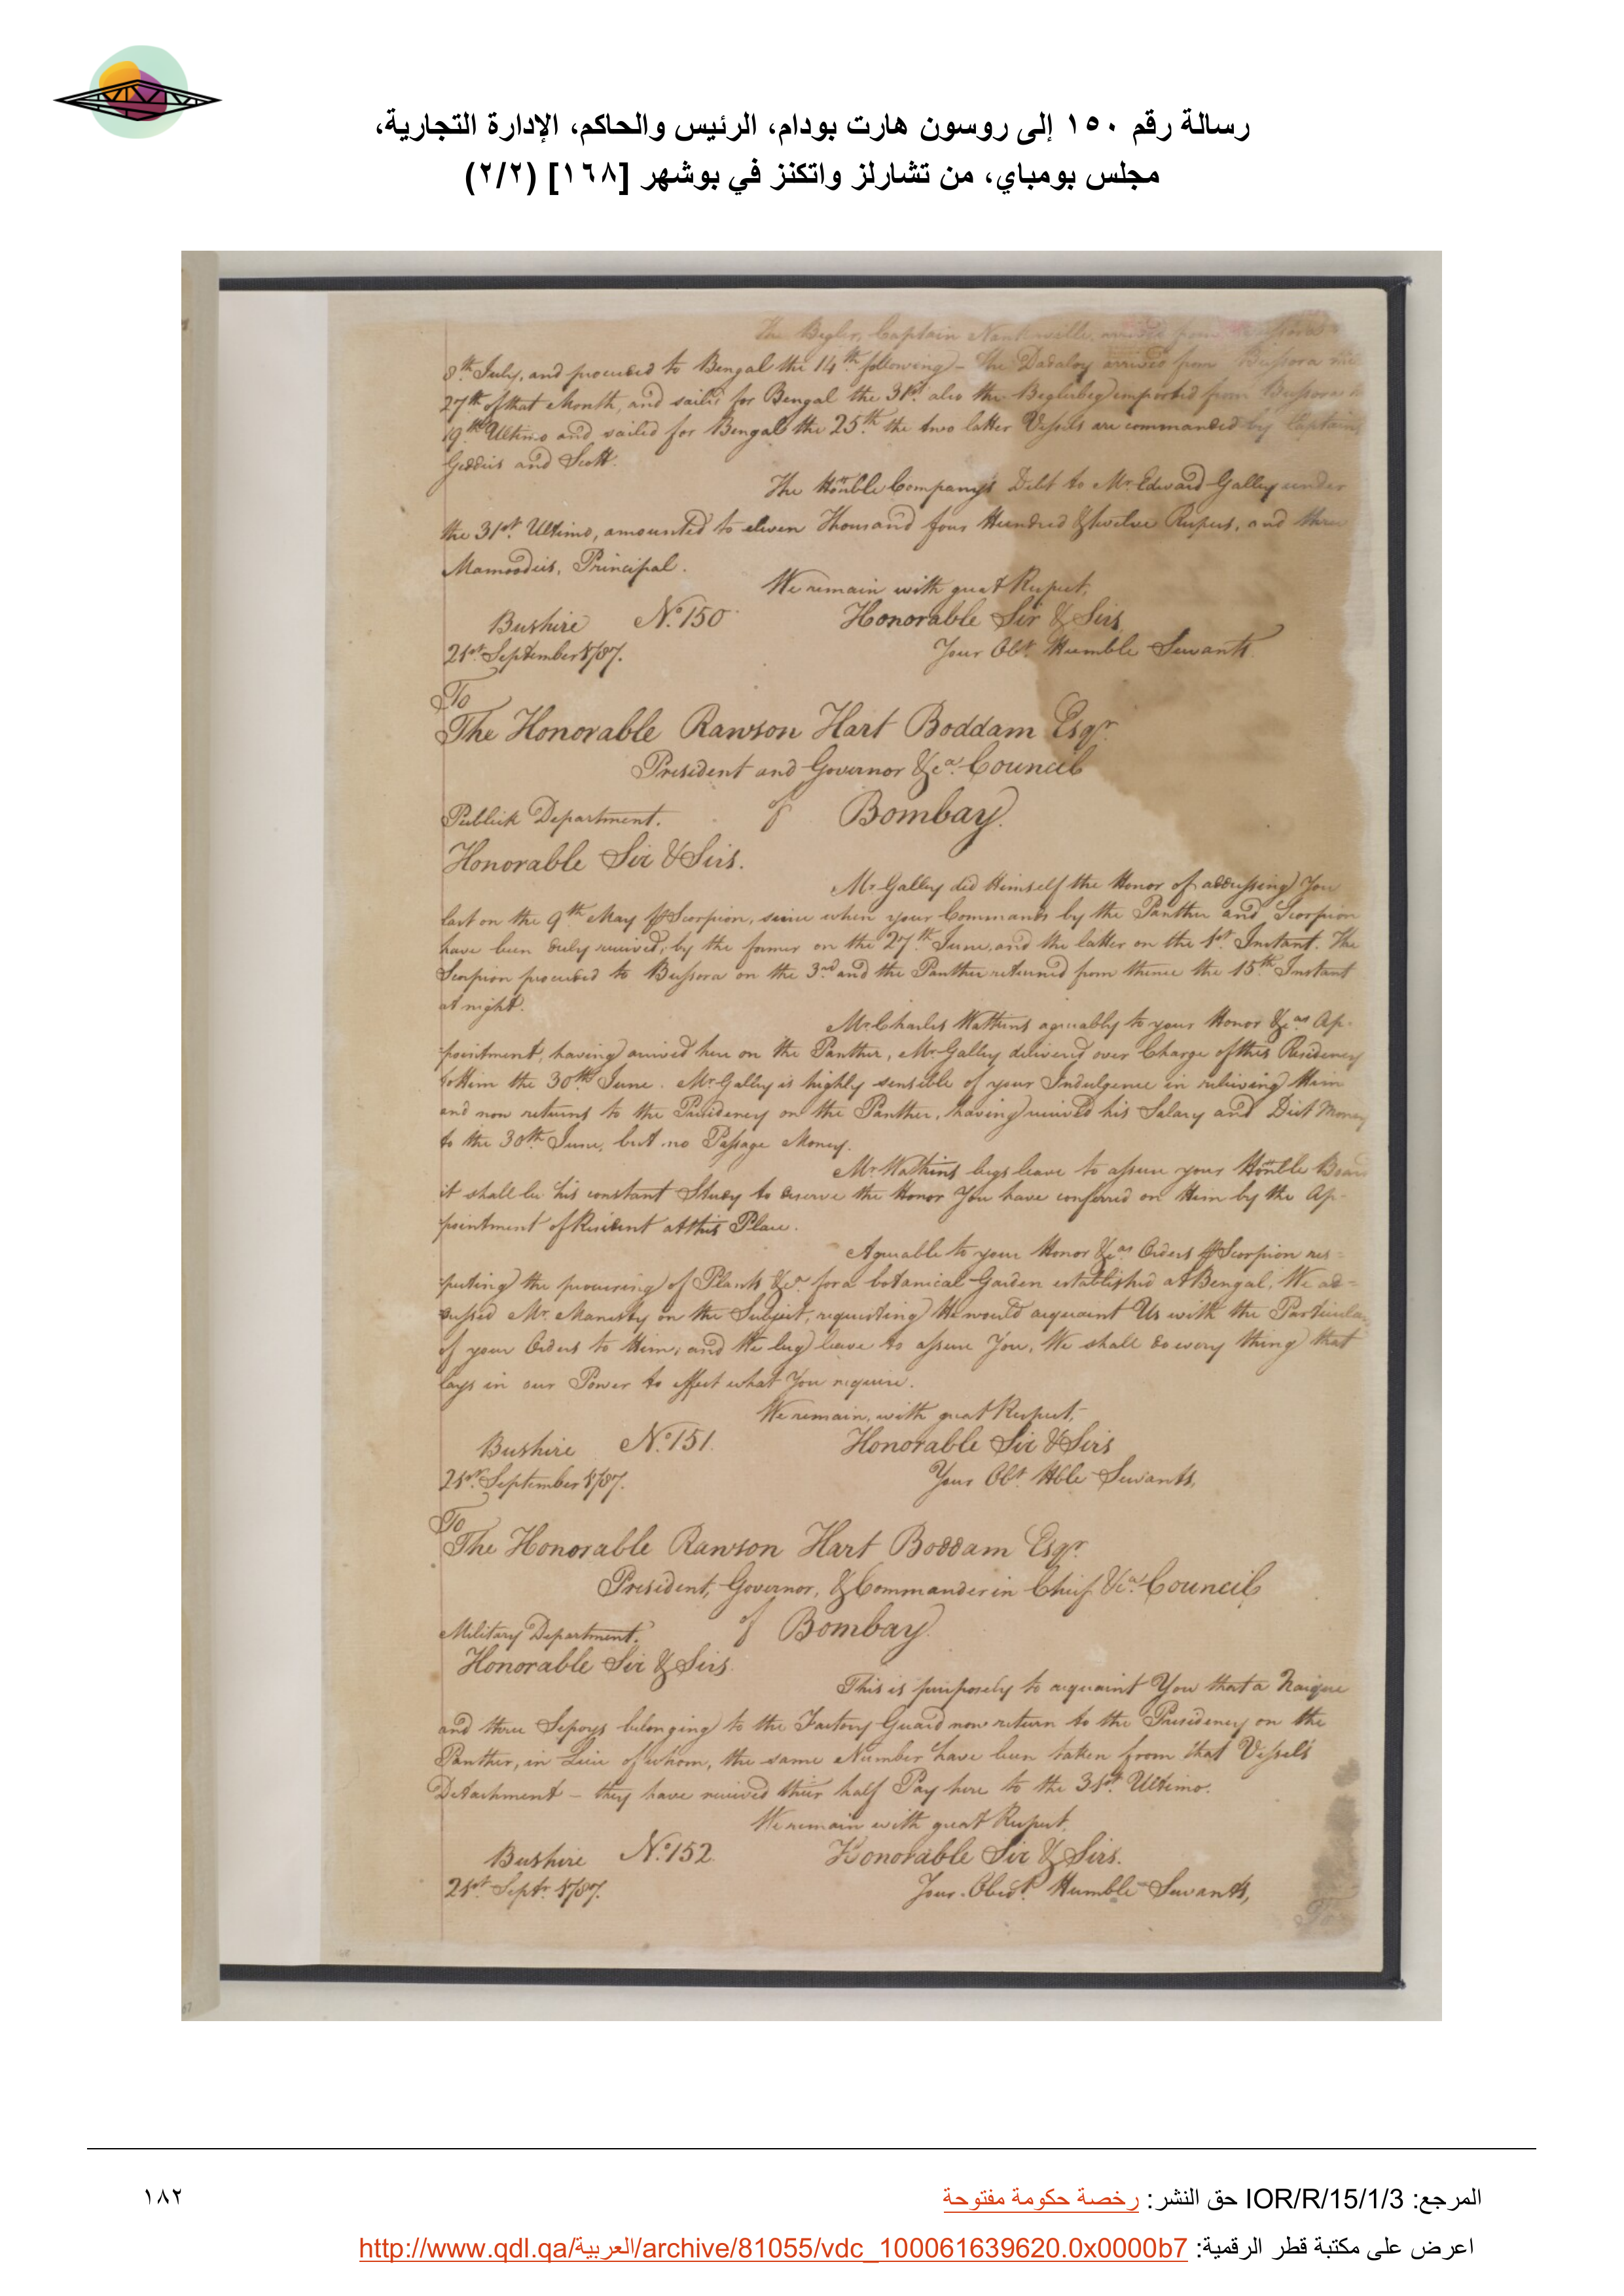 رسالة رقم ١٥٠ إلى روسون هارت بودام، الرئيس والحاكم، الإدارة التجارية،
مجلس بومباي، من تشارلز واتكنز في بوشهر [١٦٨] (٢/٢)
The Begler, Captain Nankivelle, arrived from
8th July, and proceeded to Bengal the 14th following - The Dadaloy arrived from Bussora the
27th of that Month, and sailed for Bengal the 31st also the Beglerbeg imported from Bussora
19th Ultimo and sailed for Bengal the 25th the two latter Vessels are commanded by Captains
Geddis and Scott.
The Honble Company's Debt to Mr. Edward Galley under
the 31st Ultimo, amounted to eleven Thousand four Hundred & twelve Rupees, and three
Mamoodies, Principal.
We remain with great Respect,
Bushire No. 150 Honorable Sir & Sirs
21st September 1787. Your Obt. Humble Servants
To
The Honorable Rawson Hart Boddam Esqr.
President and Governor &ca. Council
Publick Department. of Bombay.
Honorable Sir & Sirs.
Mr. Galley did Himself the Honor of addressing You
last on the 9th May ⅌ Scorpion, since when your Commands by the Panther and Scorpion
have been duly received, by the former on the 27th June, and the latter on the 1st Instant. The
Scorpion proceeded to Bussora on the 3rd and the Panther returned from thence the 15th Instant
at night.
Mr. Charles Watkins agreeably to your Honor &cas Ap-
pointment, having arrived here on the Panther, Mr. Galley delivered over Charge of this Residency
to Him the 30th June. Mr. Galley is highly sensible of your Indulgence in relieving Him
and now returns to the Presidency on the Panther, having received his Salary and Diet Money
to the 30th June, but no Passage Money.
Mr. Watkins begs leave to assure your Honble Board
it shall be his constant Study to deserve the Honor You have conferred on Him by the Ap-
pointment of Resident at this Place.
Agreeable to your Honor &cas Orders ⅌ Scorpion res-
pecting the procuring of Plants &ca. for a botanical Garden established at Bengal, We ad-
dressed Mr. Manesty on the Subject, requesting He would acquaint Us with the Particulars
of your Orders to Him; and We beg leave to assure You, We shall do every thing that
lays in our Power to effect what You require.
We remain, with great Respect,
Bushire No. 151. Honorable Sir & Sirs
21st September 1787. Your Obt. Hble Servants,
To
The Honorable Rawson Hart Boddam Esqr.
President, Governor, & Commander in Chief &ca. Council
Military Department. of Bombay.
Honorable Sir & Sirs.
This is purposely to acquaint You that a Naique
and three Sepoys belonging to the Factory Guard now return to the Presidency on the
Panther, in Lieu of whom, the same Number have been taken from that Vessel's
Detachment - they have received their half Pay here to the 31st Ultimo.
We remain with great Respect,
Bushire No. 152. Honorable Sir & Sirs.
21st Septr. 1787. Your Obedt. Humble Servants,
المرجع: IOR/R/15/1/3 حق النشر: رخصة حكومة مفتوحة
١٨٢
اعرض على مكتبة قطر الرقمية: http://www.qdl.qa/العربية/archive/81055/vdc_100061639620.0x0000b7